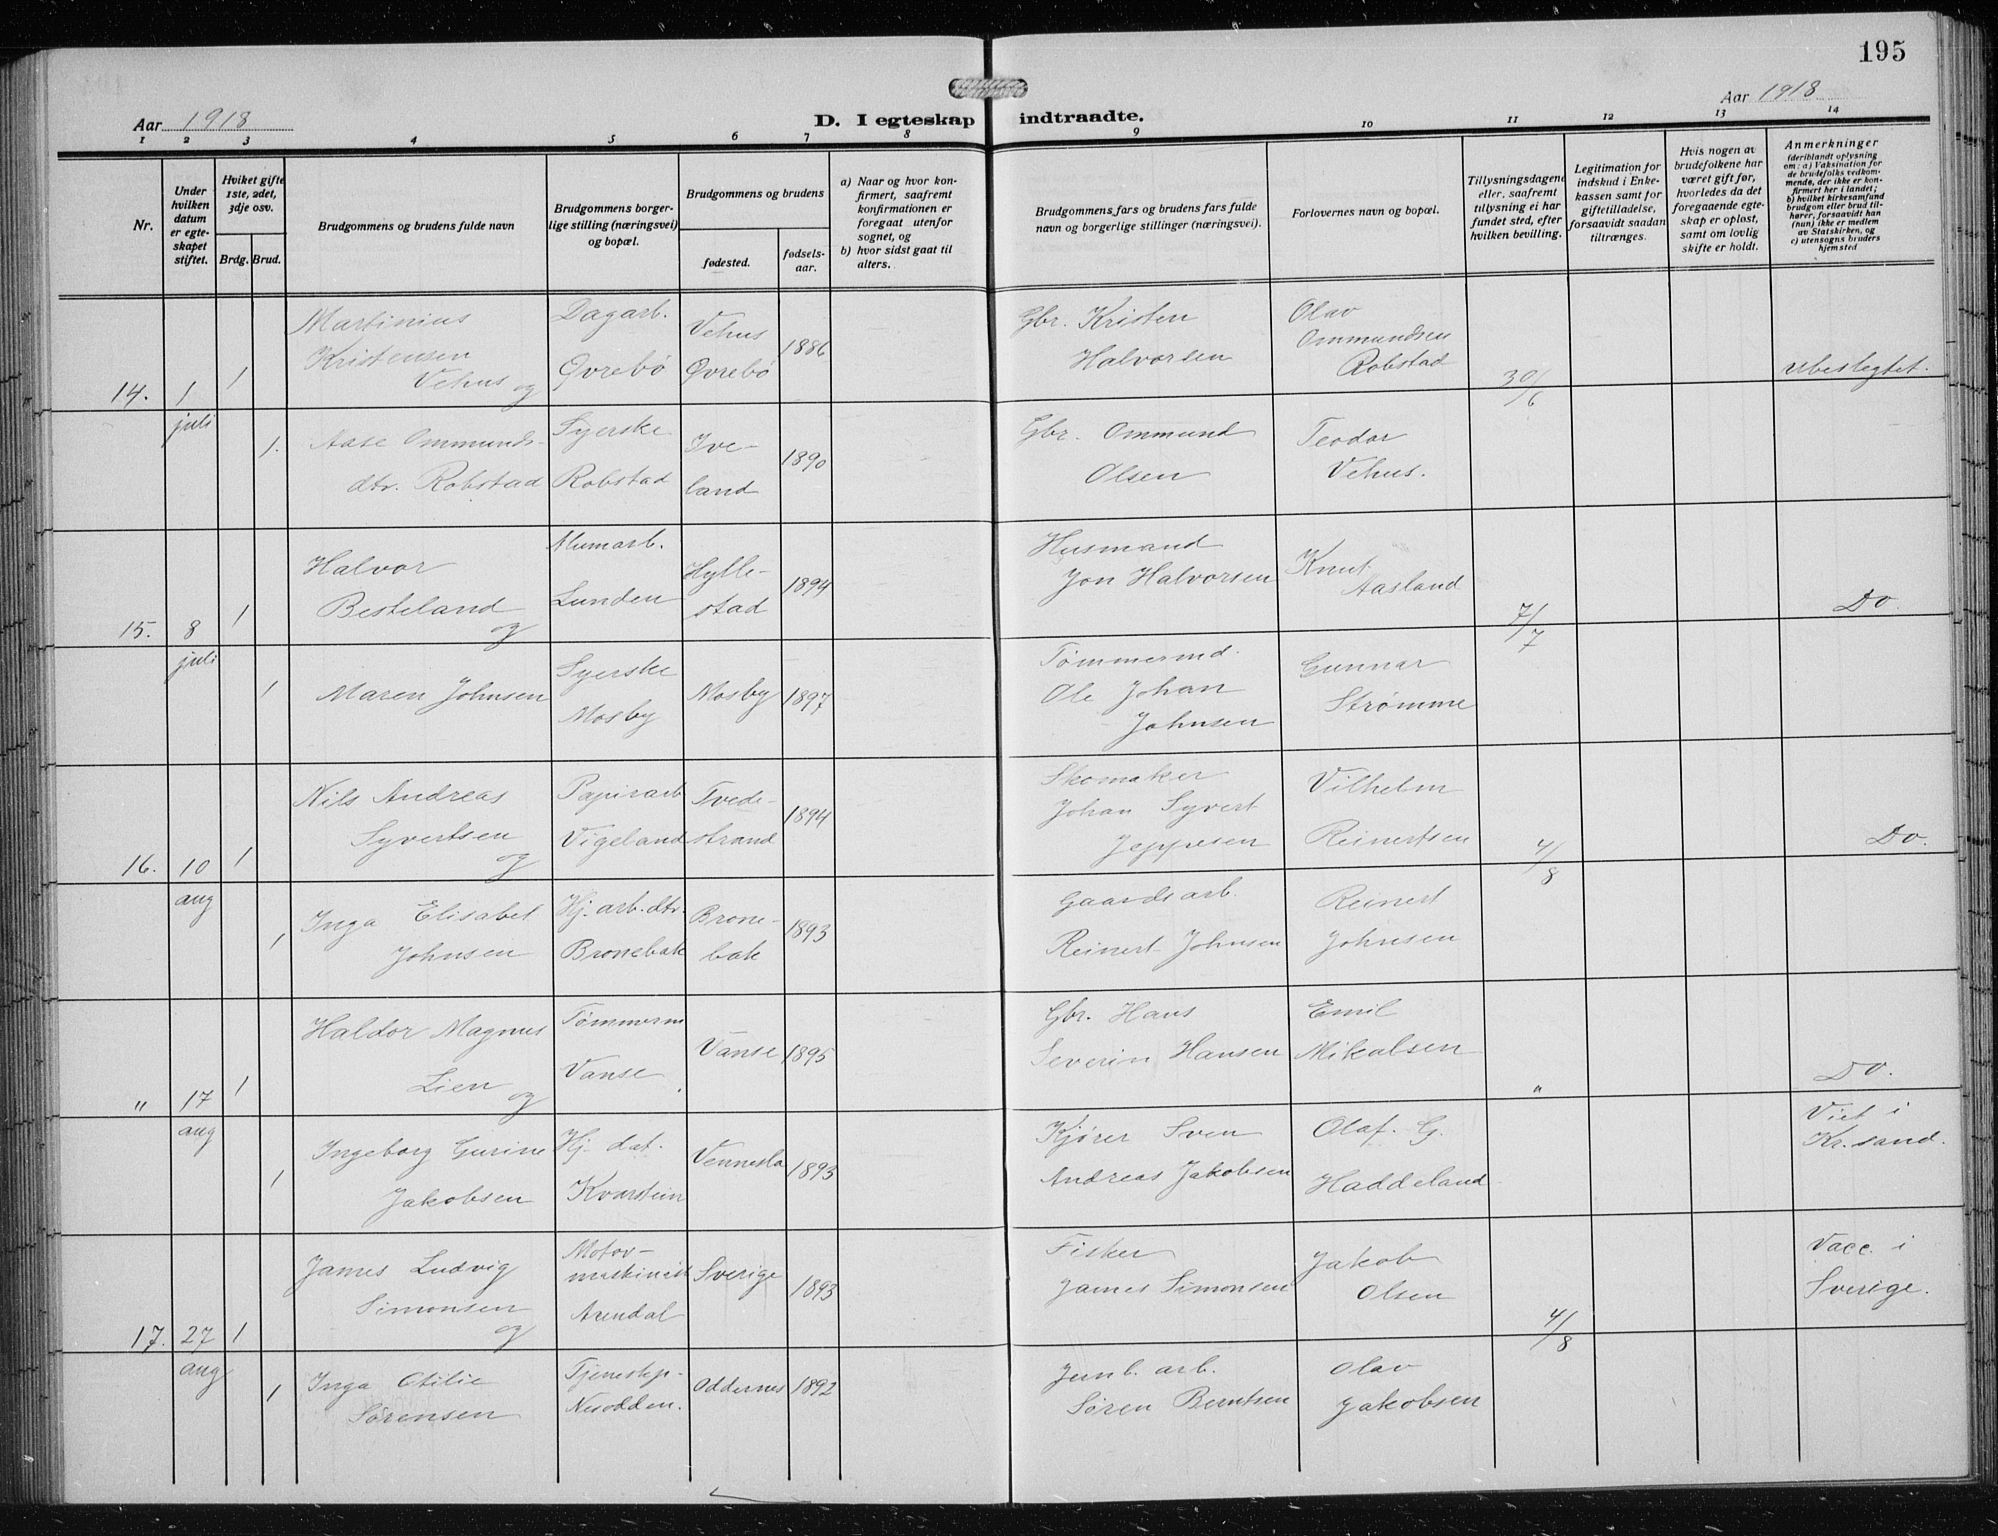 195
Aar 1918
Aar 1918
D. I egteskap indtraadte.
1 2 3 4 5 6 7 8 9 10 11 12 13 14
Nr.
Under hvilken datum er egteskapet stiftet.
Hviket gifte 1ste, 2det, 3dje osv.
Brdg. Brud.
Brudgommens og brudens fulde navn
Brudgommens borgerlige stilling (næringsvei) og bopæl.
Brudgommens og brudens
fødested.
fødselsaar.
a) Naar og hvor konfirmert, saafremt konfirmationen er foregaat utenfor sognet, og
b) hvor sidst gaat til alters.
Brudgommens fars og brudens fars fulde navn og borgerlige stillinger (næringsvei).
Forlovernes navn og bopæl.
Tillysningsdagene eller, saafremt tillysning ei har fundet sted, efter hvilken bevilling.
Legitimation for indskud i Enkekassen samt for giftetilladelse, forsaavidt saadan tiltrænges.
Hvis nogen av brudefolkene har været gift før, hvorledes da det foregaaende egteskap er opløst, samt om lovlig skifte er holdt.
Anmerkninger
(deriblandt oplysning om: a) Vaksination for de brudefolks vedkommende, der ikke er konfirmert her i landet; b) hvilket kirkesamfund brudgom eller brud tilhører, forsaavidt han (hun) ikke er medlem av Statskirken, og c) utensogns bruders hjemsted
14. 1 juli 1
Martinius
Kristensen
Vehus og
Dagarb.
Øvrebö
Vehus
Øvrebö
1886
Gbr. Kristen
Halvorsen
Olav
Ommundsen
Robstad
30/6
ubeslegtet.
1.
Aase Ommunds-
dtr. Robstad
Syerske
Robstad
Ive-
land
1890
Gbr. Ommund
Olsen
Teodor
Vehus.
15. 8 juli 1
Halvor
Besteland
og
Alumarb.
Lunden
Hylle-
stad
1894
Husmand
Jon Halvorsen
Knut
Aasland
7/7
Do.
1
Maren Johnsen
Syerske
Mosby
Mosby
1897
Tømmermd.
Ole Johan
Johnsen
Gunnar
Strømme
16. 10 aug 1
Nils Andreas
Syvertsen
og
Papirarb
Vigeland
Tvede-
strand
1894
Skomaker
Johan Syvert
Jeppesen
Vilhelm
Reinertsen
4/8
Do.
1
Inga Elisabet
Johnsen
Hj. arb. dtr.
Bronebak
Brone-
bak
1893
Gaardsarb.
Reinert Johnsen
Reinert
Johnsen
" 17 aug 1
Haldor Magnus
Lien og
Tømmerm
Vanse
Vanse
1895
Gbr. Hans
Severin Hansen
Emil
Mikalsen
"
Do.
1
Ingeborg Gurine
Jakobsen
Hj. dat.
Kvarstein
Vennesla
1893
Kjører Sven
Andreas Jakobsen
Olaf. G.
Haddeland
Viet i
Kr.sand.
17. 27 aug 1
James Ludvig
Simonsen
og
Motor-
maskinist
Arendal
Sverige
1893
Fisker
James Simonsen
Jakob
Olsen
4/8
Vacc. i
Sverige.
1
Inga Otilie
Sørensen
Tjenestep.
Nesodden.
Oddernes
1892
Jernb. arb.
Søren Berntsen
Olav
Jakobsen